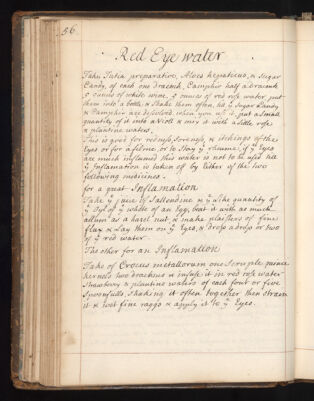 56
Red Eye water
Take Tutia preparative, Aloes hepaticus, & Sugar
Candy, of each one dracmk, Camphir half a dracmk
5 ounces of white wine, 5 ounces of red rose water put
them into a bottle, & shake them often, till ye Sugar Candy
& Camphir are dissolved when you use it, put a small
quantity of it into a viol & mix it with a little rose
& plantine waters.
This is good for redness, soreness, & itchings of the
eyes or for a filme, or to stay ye rheume if ye Eyes
are much inflamed this water is not to be used till
ye Inflamation is taken of by either of the two
following medicines.
for a great Inflamation
Take ye juice of Sallendine & ye like quantity of
ye of ye white of an Egg, beat it with as much
allum as a hazel nut & make plasters of fine
flax & Lay them on ye Eyes, & drop a drop or two
of ye red water.
The other for an Inflamation
Take of Crocus metallorum one Scruple
kernels two drachms & infuse it in red rose water
Strawbery & plantine waters of each four or five
Spoonfulls, shaking it often together then straem
it & wet fine raggs & apply it to ye Eyes.